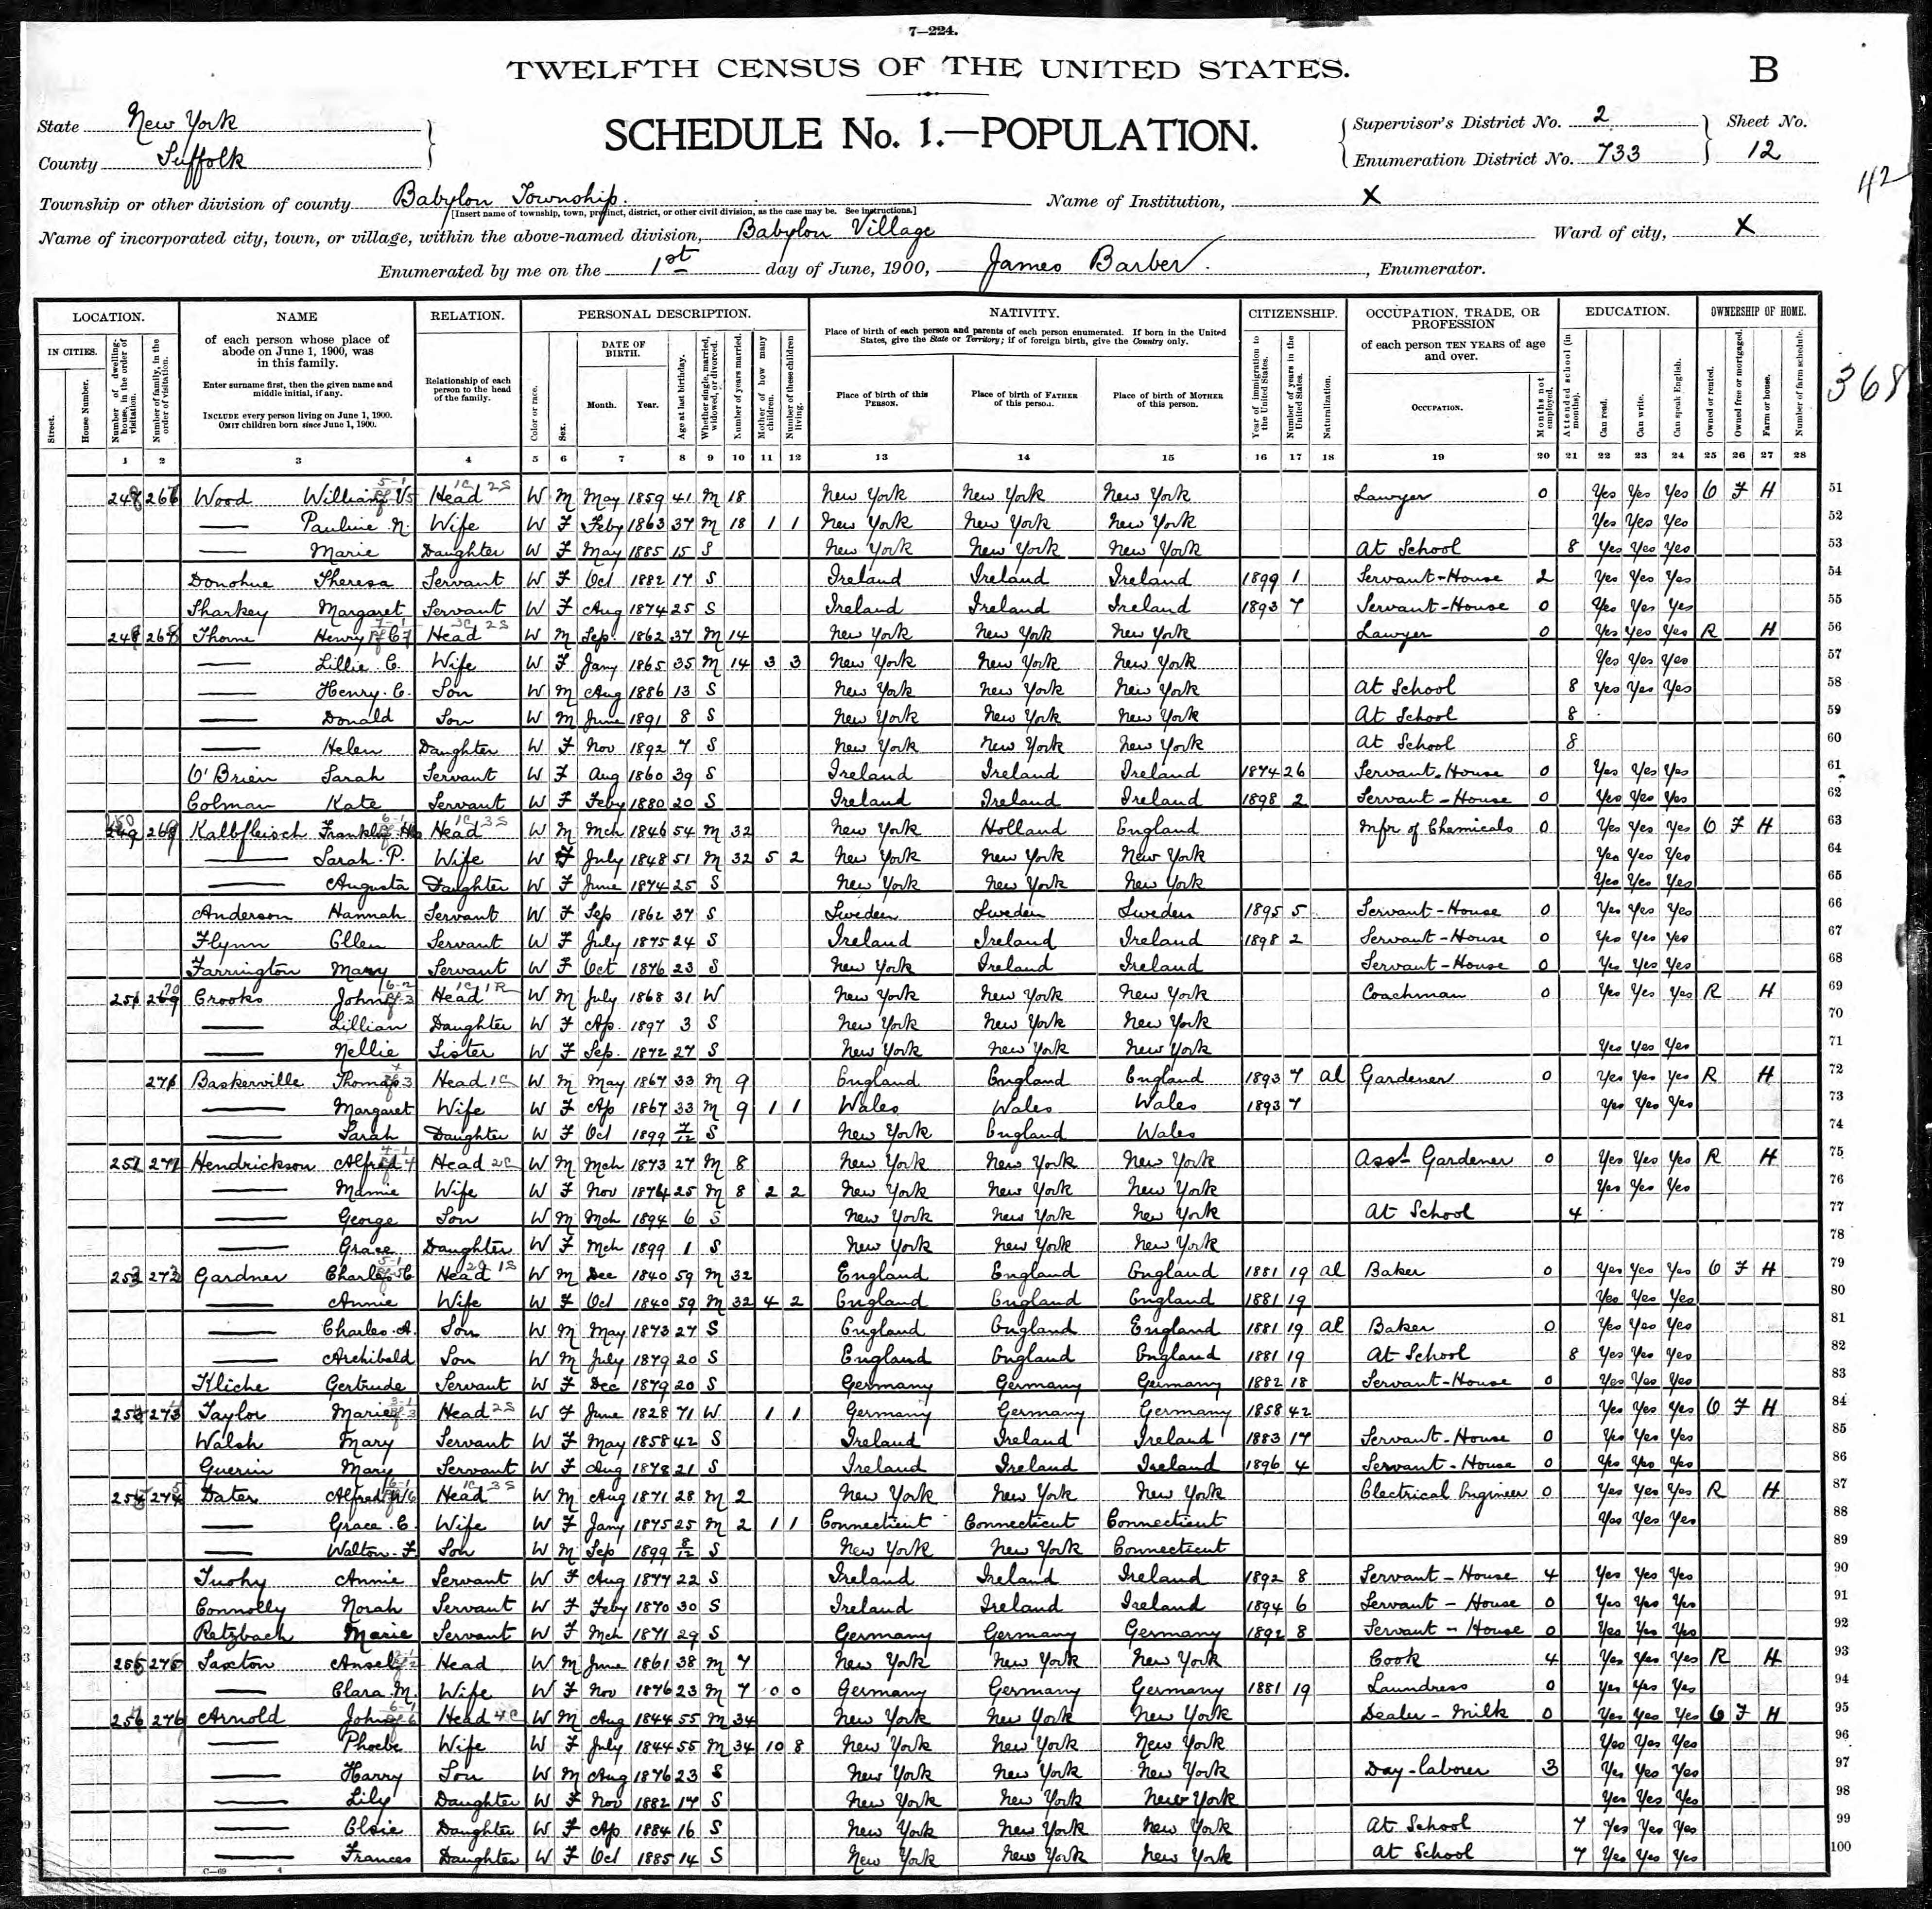 7—224.
TWELFTH CENSUS OF THE UNITED STATES.
B
State New York
County Suffolk
SCHEDULE No. 1.—POPULATION.
Supervisor's District No. 2
Enumeration District No. 733
Sheet No.
12
42
Township or other division of county Babylon Township.
[Insert name of township, town, precinct, district, or other civil division, as the case may be. See instructions.]
Name of Institution, X
Name of incorporated city, town, or village, within the above-named division, Babylon Village
Ward of city, X
Enumerated by me on the 1st day of June, 1900, James Barber. , Enumerator.
368
LOCATION.
IN CITIES.
Street.
House Number.
Number of dwelling-house, in the order of visitation.
Number of family, in the order of visitation.
NAME
of each person whose place of abode on June 1, 1900, was in this family.
Enter surname first, then the given name and middle initial, if any.
INCLUDE every person living on June 1, 1900.
OMIT children born since June 1, 1900.
RELATION.
Relationship of each person to the head of the family.
PERSONAL DESCRIPTION.
Color or race.
Sex.
DATE OF BIRTH.
Month.
Year.
Age at last birthday.
Whether single, married, widowed, or divorced.
Number of years married.
Mother of how many children.
Number of these children living.
NATIVITY.
Place of birth of each person and parents of each person enumerated. If born in the United States, give the State or Territory; if of foreign birth, give the Country only.
Place of birth of this PERSON.
Place of birth of FATHER of this person.
Place of birth of MOTHER of this person.
CITIZENSHIP.
Year of immigration to the United States.
Number of years in the United States.
Naturalization.
OCCUPATION, TRADE, OR PROFESSION
of each person TEN YEARS of age and over.
OCCUPATION.
Months not employed.
EDUCATION.
Attended school (in months).
Can read.
Can write.
Can speak English.
OWNERSHIP OF HOME.
Owned or rented.
Owned free or mortgaged.
Farm or house.
Number of farm schedule.
1 2 3 4 5 6 7 8 9 10 11 12 13 14 15 16 17 18 19 20 21 22 23 24 25 26 27 28
Wood William V. Head W M May 1859 41 M 18 New York New York New York Lawyer 0 Yes Yes Yes O F H 51
— Pauline N. Wife W F Feby 1863 37 M 18 1 1 New York New York New York Yes Yes Yes 52
— Marie Daughter W F May 1885 15 S New York New York New York At School 8 Yes Yes Yes 53
Donohue Theresa Servant W F Oct 1882 17 S Ireland Ireland Ireland 1899 1 Servant-House 2 Yes Yes Yes 54
Sharkey Margaret Servant W F Aug 1874 25 S Ireland Ireland Ireland 1893 7 Servant-House 0 Yes Yes Yes 55
Thorne Henry C Head W M Sep 1862 37 M 14 New York New York New York Lawyer 0 Yes Yes Yes R H 56
— Lillie C. Wife W F Jany 1865 35 M 14 3 3 New York New York New York Yes Yes Yes 57
— Henry C. Son W M Aug 1886 13 S New York New York New York At School 8 Yes Yes Yes 58
— Donald Son W M June 1891 8 S New York New York New York At School 8 59
— Helen Daughter W F Nov 1892 7 S New York New York New York At School 8 60
O'Brien Sarah Servant W F Aug 1860 39 S Ireland Ireland Ireland 1874 26 Servant-House 0 Yes Yes Yes 61
Colman Kate Servant W F Feby 1880 20 S Ireland Ireland Ireland 1898 2 Servant-House 0 Yes Yes Yes 62
Kalbfleisch Franklin H Head W M Mch 1846 54 M 32 New York Holland England Mfr of Chemicals 0 Yes Yes Yes O F H 63
— Sarah P. Wife W F July 1848 51 M 32 5 2 New York New York New York Yes Yes Yes 64
— Augusta Daughter W F June 1874 25 S New York New York New York Yes Yes Yes 65
Anderson Hannah Servant W F Sep 1862 37 S Sweden Sweden Sweden 1895 5 Servant-House 0 Yes Yes Yes 66
Flynn Ellen Servant W F July 1875 24 S Ireland Ireland Ireland 1898 2 Servant-House 0 Yes Yes Yes 67
Farrington Mary Servant W F Oct 1876 23 S New York Ireland Ireland Servant-House 0 Yes Yes Yes 68
Crooks John Head W M July 1868 31 W New York New York New York Coachman 0 Yes Yes Yes R H 69
— Lillian Daughter W F Ap. 1897 3 S New York New York New York 70
— Nellie Sister W F Sep. 1872 27 S New York New York New York Yes Yes Yes 71
Baskerville Thomas Head W M May 1867 33 M 9 England England England 1893 7 al Gardener 0 Yes Yes Yes R H 72
— Margaret Wife W F Ap 1867 33 M 9 1 1 Wales Wales Wales 1893 7 Yes Yes Yes 73
— Sarah Daughter W F Oct 1899 7/12 S New York England Wales 74
Hendrickson Alfred Head W M Mch 1873 27 M 8 New York New York New York Asst Gardener 0 Yes Yes Yes R H 75
— Mamie Wife W F Nov 1874 25 M 8 2 2 New York New York New York Yes Yes Yes 76
— George Son W M Mch 1894 6 S New York New York New York At School 4 77
— Grace Daughter W F Mch 1899 1 S New York New York New York 78
Gardner Charles C Head W M Dec 1840 59 M 32 England England England 1881 19 al Baker 0 Yes Yes Yes O F H 79
— Annie Wife W F Oct 1840 59 M 32 4 2 England England England 1881 19 Yes Yes Yes 80
— Charles A. Son W M May 1873 27 S England England England 1881 19 al Baker 0 Yes Yes Yes 81
— Archibald Son W M July 1879 20 S England England England 1881 19 At School 8 Yes Yes Yes 82
Kliche Gertrude Servant W F Dec 1879 20 S Germany Germany Germany 1882 18 Servant-House 0 Yes Yes Yes 83
Taylor Marie Head W F June 1828 71 W 1 1 Germany Germany Germany 1858 42 Yes Yes Yes O F H 84
Walsh Mary Servant W F May 1858 42 S Ireland Ireland Ireland 1883 17 Servant-House 0 Yes Yes Yes 85
Guerin Mary Servant W F Aug 1878 21 S Ireland Ireland Ireland 1896 4 Servant-House 0 Yes Yes Yes 86
Dater Alfred W Head W M Aug 1871 28 M 2 New York New York New York Electrical Engineer 0 Yes Yes Yes R H 87
— Grace C. Wife W F Jany 1875 25 M 2 1 1 Connecticut Connecticut Connecticut Yes Yes Yes 88
— Walton F Son W M Sep 1899 8/12 S New York New York Connecticut 89
Tuohy Annie Servant W F Aug 1877 22 S Ireland Ireland Ireland 1892 8 Servant-House 4 Yes Yes Yes 90
Connolly Norah Servant W F Feby 1870 30 S Ireland Ireland Ireland 1894 6 Servant-House 0 Yes Yes Yes 91
Retzbach Marie Servant W F Mch 1871 29 S Germany Germany Germany 1892 8 Servant-House 0 Yes Yes Yes 92
Saxton Ansel Head W M June 1861 38 M 7 New York New York New York Cook 4 Yes Yes Yes R H 93
— Clara M. Wife W F Nov 1876 23 M 7 0 0 Germany Germany Germany 1881 19 Laundress 0 Yes Yes Yes 94
Arnold John Head W M Aug 1844 55 M 34 New York New York New York Dealer-Milk 0 Yes Yes Yes O F H 95
— Phoebe Wife W F July 1844 55 M 34 10 8 New York New York New York Yes Yes Yes 96
— Harry Son W M Aug 1876 23 S New York New York New York Day-laborer 3 Yes Yes Yes 97
— Lily Daughter W F Nov 1882 17 S New York New York New York Yes Yes Yes 98
— Elsie Daughter W F Ap 1884 16 S New York New York New York At School 7 Yes Yes Yes 99
— Frances Daughter W F Oct 1885 14 S New York New York New York At School 7 Yes Yes Yes 100
C—69 4